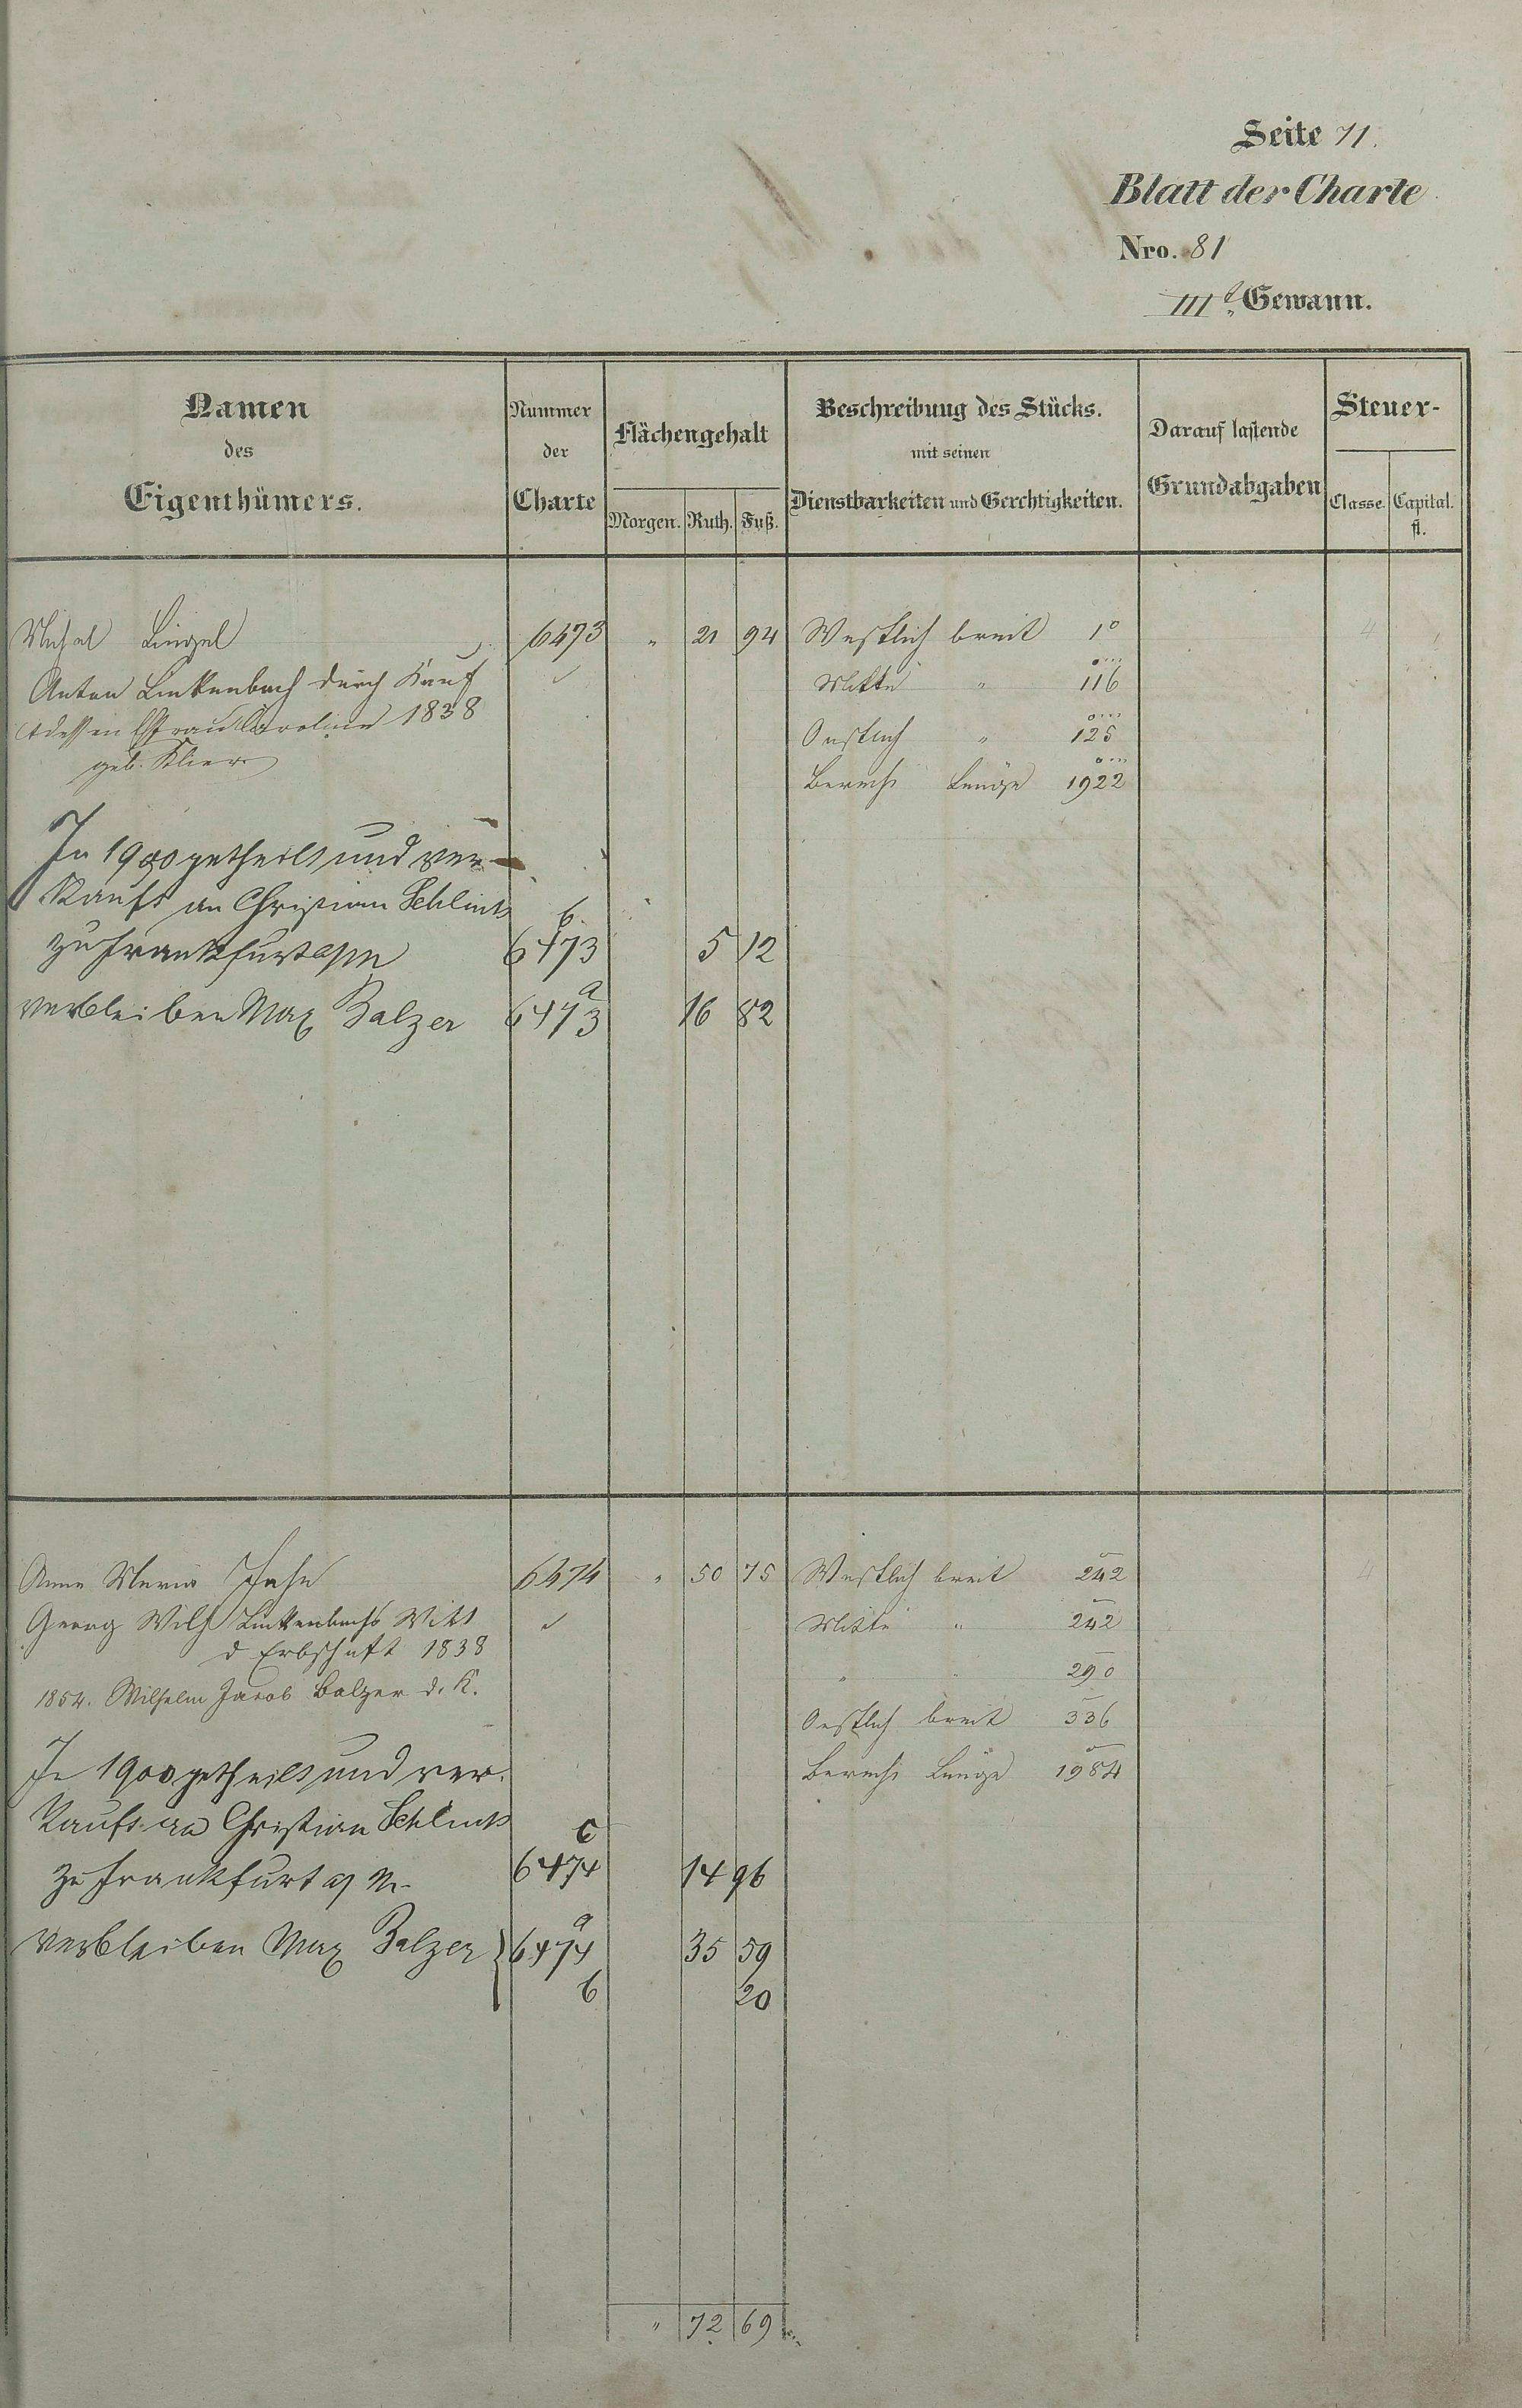 Seite 71.
Blatt der Charte
Nro. 81
III Gewann.
Namen des Eigenthümers.
Nummer der Charte
Flächengehalt
Morgen. Ruth. Fuß.
Beschreibung des Stücks.
mit seinen
Dienstbarkeiten und Gerechtigkeiten.
Darauf lastende
Grundabgaben
Steuer-
Classe. Capital.
fl.
6473 " 21 94 Westlich breit 1° 4
Anton Linkenbach durch Kauf Mitte " 116
Ehefrau Caroline 1838 Oestlich " 125
geb. Klier
Berechn Länge 1922
In 1900 getheilt und ver-
kauft an Christian Schlink b.
zu Frankfurt a/M 6473 5 12
verbleiben Max Balzer 6473 a 16 82
Anna Maria Jahn 6474 " 50 75 Westlich breit 242 4
Georg Wilh Linkenbachs Witt Mitte " 242
d Erbschaft 1838
" " 290
1854. Wilhelm Jacob Balzer d. K.
Oestlich breit 336
In 1900 getheilt und ver-
Berechn Länge 1984
kauft an Christian Schlink c
zu Frankfurt a/M. 6474 14 96
verbleiben Max Balzer } 6474 a 35 59
b 20
" 72 69